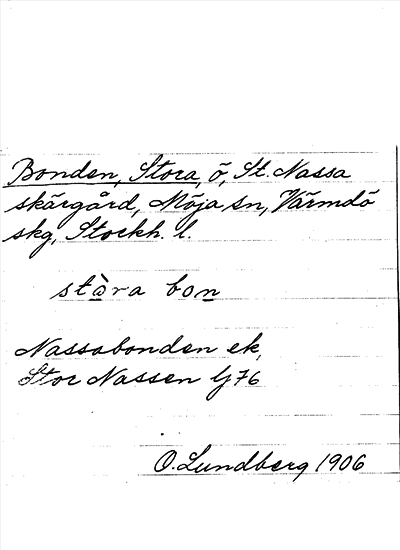 Bonden, Stora, ö, St. Nassa
skärgård, Möja sn, Värmdö
skg, Stockh. l.
stòra bon
Nassabonden ek,
Stor Nassen G76
O. Lundberg 1906